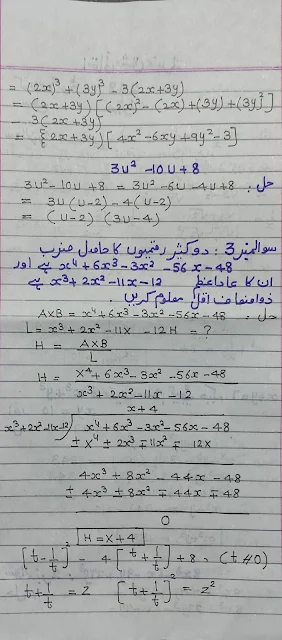 = (2x)³ + (3y)³ - 3(2x+3y)
= (2x+3y) [(2x)² - (2x) + (3y) + (3y)²]
- 3(2x+3y)
= {2x+3y) [4x² - 6xy + 9y² - 3]
3U² - 10U + 8
حل: 3U² - 10U + 8 = 3U² - 6U - 4U + 8
= 3U (U-2) - 4 (U-2)
= (U-2) (3U-4)
سوال نمبر 3: دو کثیر رقمیوں کا حاصل ضرب
x⁴ + 6x³ - 3x² - 56x - 48 ہے اور
ان کا عاداعظم x³ + 2x² - 11x - 12 ہے
ذواضعاف اقل معلوم کریں.
حل: A×B = x⁴ + 6x³ - 3x² - 56x - 48
L = x³ + 2x² - 11x - 12 H = ?
H = A×B / L
H = x⁴ + 6x³ - 3x² - 56x - 48 / x³ + 2x² - 11x - 12
x + 4
x³ + 2x² - 11x - 12) x⁴ + 6x³ - 3x² - 56x - 48
± x⁴ ± 2x³ ∓ 11x² ∓ 12x
4x³ + 8x² - 44x - 48
± 4x³ ± 8x² ∓ 44x ∓ 48
0
H = x + 4
[t - 1/t]² - 4 [t + 1/t] + 8, (t ≠ 0)
t + 1/t = z [t + 1/t]² = z²